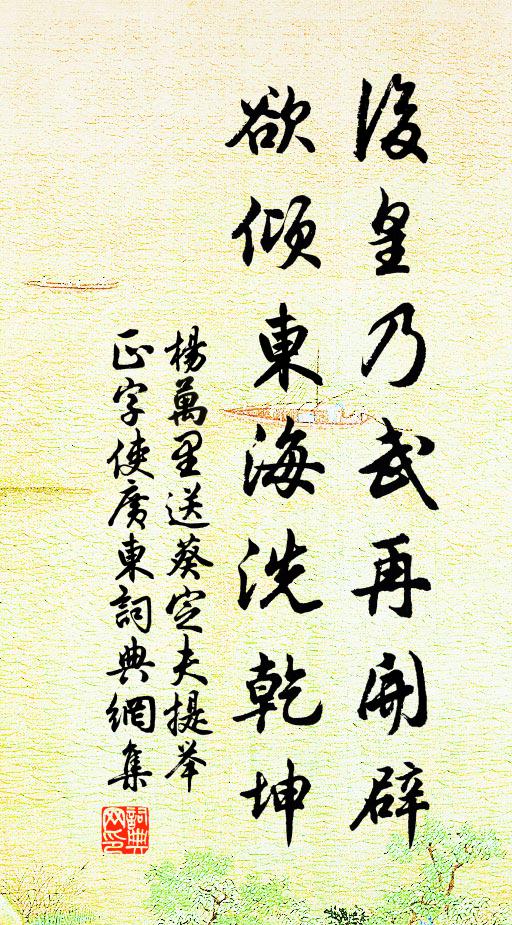 後皇乃武再開辟
欲傾東海洗乾坤
楊萬里送葵定夫提举
正字使廣東詞典網集
詞典网印